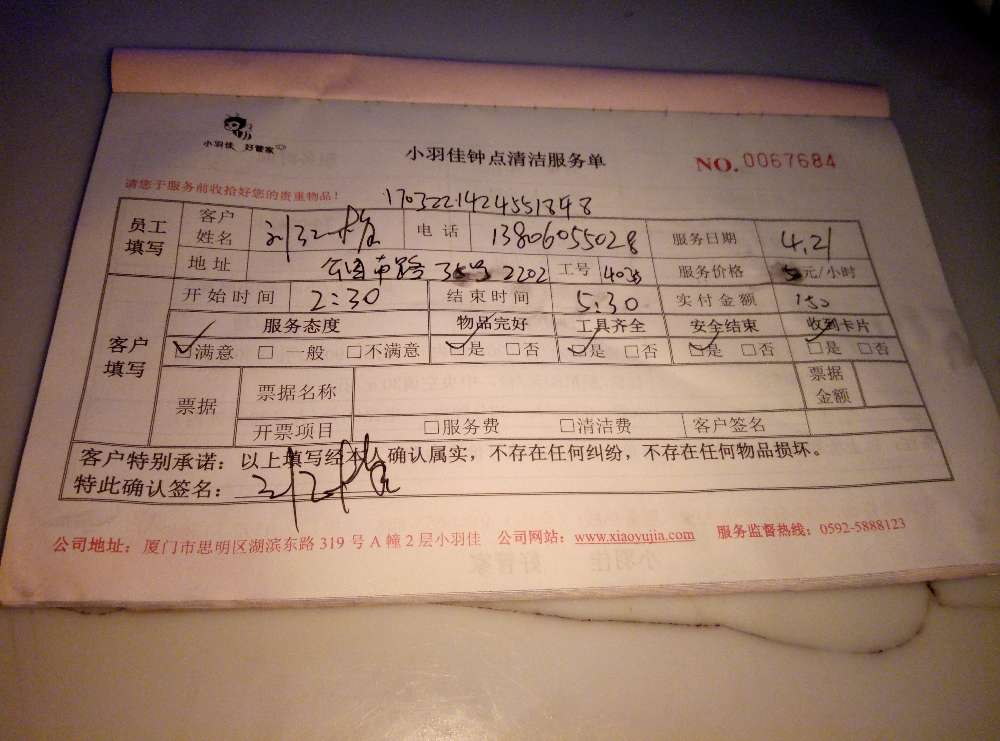 小羽佳 好管家
小羽佳钟点清洁服务单
NO.0067684
请您于服务前收拾好您的贵重物品！
1703221424551848
员工填写 客户姓名 电话 13806055028 服务日期 4.21
地址 35号2202 工号 服务价格 元/小时
开始时间 2:30 结束时间 5:30 实付金额 150
客户填写 服务态度 物品完好 工具齐全 安全结束 收到卡片
☑满意 □一般 □不满意 ☑是 □否 ☑是 □否 ☑是 □否 ☑是 □否
票据 票据名称 票据金额
开票项目 □服务费 □清洁费 客户签名
客户特别承诺：以上填写经本人确认属实，不存在任何纠纷，不存在任何物品损坏。
特此确认签名：
公司地址：厦门市思明区湖滨东路 319 号 A 幢 2 层小羽佳 公司网站：www.xiaoyujia.com 服务监督热线：0592-5888123